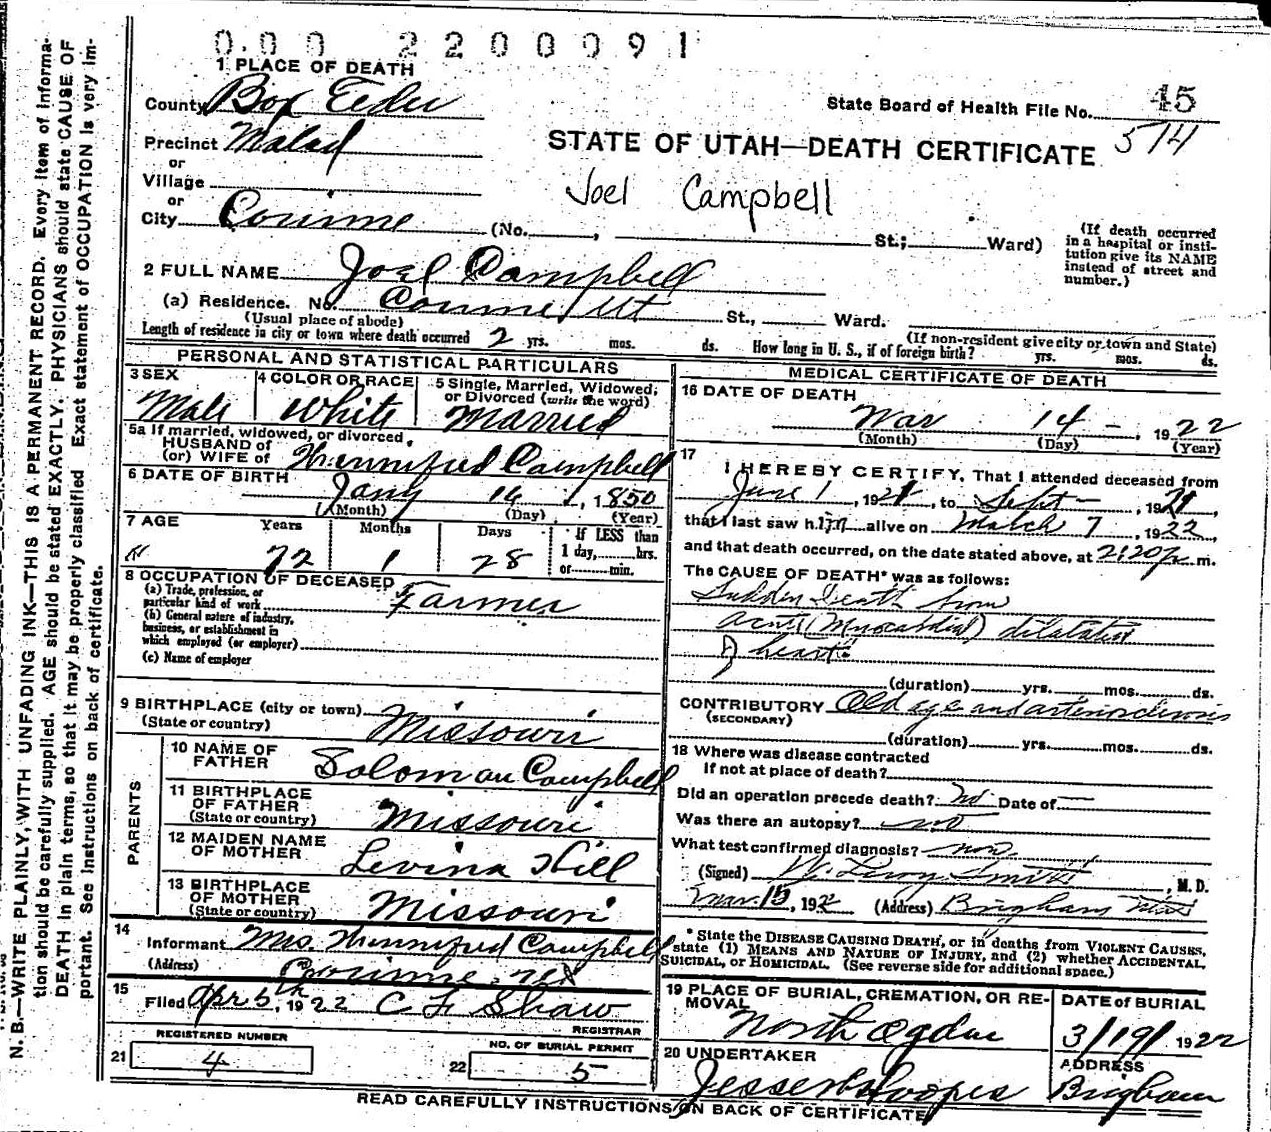 0.00 2200091
1 PLACE OF DEATH
County Box Elder
State Board of Health File No. 45
514
Precinct Malad
STATE OF UTAH—DEATH CERTIFICATE
or
Village
Joel Campbell
or
City Corinne (No. , St.; Ward)
(If death occurred in a hospital or insti-
tution give its NAME instead of street and number.)
2 FULL NAME Joel Campbell
(a) Residence. No. Corinne, Ut St., Ward.
(Usual place of abode)
(If non-resident give city or town and State)
Length of residence in city or town where death occurred 2 yrs. mos. ds. How long in U. S., if of foreign birth? yrs. mos. ds.
PERSONAL AND STATISTICAL PARTICULARS
3 SEX
Male
4 COLOR OR RACE
White
5 Single, Married, Widowed,
or Divorced (write the word)
Married
5a If married, widowed, or divorced,
HUSBAND of
(or) WIFE of Winnifred Campbell
6 DATE OF BIRTH
Jany 14, 1850
(Month) (Day) (Year)
7 AGE Years Months Days If LESS than
72 1 28 1 day, hrs.
or min.
8 OCCUPATION OF DECEASED
(a) Trade, profession, or
particular kind of work Farmer
(b) General nature of industry,
business, or establishment in
which employed (or employer)
(c) Name of employer
9 BIRTHPLACE (city or town)
(State or country) Missouri
PARENTS
10 NAME OF
FATHER Soloman Campbell
11 BIRTHPLACE
OF FATHER
(State or country) Missouri
12 MAIDEN NAME
OF MOTHER Levina Hill
13 BIRTHPLACE
OF MOTHER
(State or country) Missouri
14
Informant Mrs. Winnifred Campbell
(Address) Corinne,
15
Filed Apr 5th, 1922 C F Shaw
REGISTRAR
REGISTERED NUMBER
21 4
NO. OF BURIAL PERMIT
22 5
MEDICAL CERTIFICATE OF DEATH
16 DATE OF DEATH
Mar 14 - , 1922
(Month) (Day) (Year)
17
I HEREBY CERTIFY, That I attended deceased from
June 1, 1921, to Sept -, 1921,
that I last saw him alive on March 7, 1922,
and that death occurred, on the date stated above, at 2:20 p. m.
The CAUSE OF DEATH* was as follows:
Sudden Death from
acute (Myocardial) dilatation
of heart.
(duration) yrs. mos. ds.
CONTRIBUTORY Old age and arteriosclerosis
(SECONDARY)
(duration) yrs. mos. ds.
18 Where was disease contracted
If not at place of death?
Did an operation precede death? no Date of —
Was there an autopsy? no
What test confirmed diagnosis? non
(Signed) W. Leroy Smith, M. D.
Mar. 15, 1922 (Address) Brigham Utah
* State the DISEASE CAUSING DEATH, or in deaths from VIOLENT CAUSES,
state (1) MEANS AND NATURE OF INJURY, and (2) whether ACCIDENTAL,
SUICIDAL, or HOMICIDAL. (See reverse side for additional space.)
19 PLACE OF BURIAL, CREMATION, OR RE-
MOVAL
North Ogden
DATE of BURIAL
3/19/ 1922
20 UNDERTAKER
Hoopes
ADDRESS
Brigham
READ CAREFULLY INSTRUCTIONS ON BACK OF CERTIFICATE
N. B.—WRITE PLAINLY, WITH UNFADING INK—THIS IS A PERMANENT RECORD. Every item of informa-
tion should be carefully supplied. AGE should be stated EXACTLY. PHYSICIANS should state CAUSE OF
DEATH in plain terms, so that it may be properly classified. Exact statement of OCCUPATION is very im-
portant. See instructions on back of certificate.